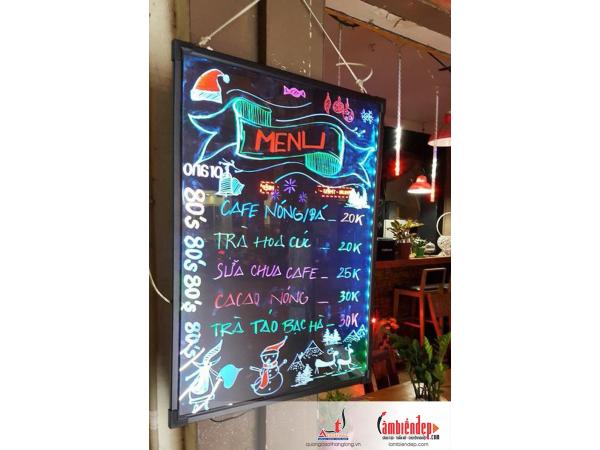 MENU
CAFE NÓNG/ĐÁ _ 20K
TRÀ HOA CÚC _ 20K
SỮA CHUA CAFE _ 25K
CACAO NÓNG _ 30K
TRÀ TÁO BẠC HÀ _ 30K
80's 80's 80's 80's
quangcaothanglong.vn
lambiendep.com